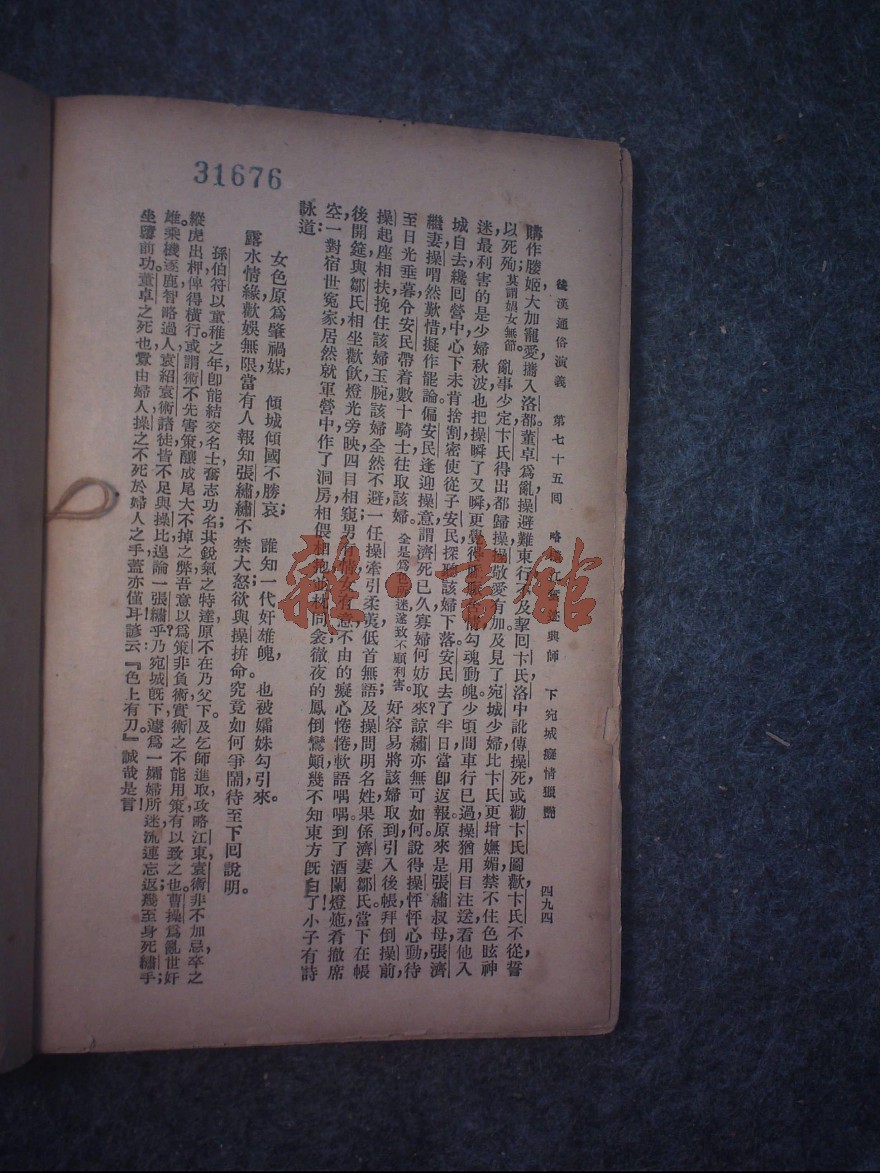 31676
後漢通俗演義　第七十五回　略　江奮迹興師　下宛城癡情獵艷　四九四
購作媵姬大加寵愛，攜入洛都董卓爲亂操避難東行不及挈回卞氏洛中訛傳操死或勸卞氏圖歡，卞氏不從誓
以死殉，莫謂娼女無節。亂事少定卞氏得出都歸操，操敬愛有加及見了宛城少婦比卞氏更增嫵媚禁不住色眩神
迷最利害的是少婦秋波也把操瞬了又瞬更覺得 勾魂動魄少頃間車行已過操猶用目注送看他入
城自去纔回營中心下未肯捨割密使從子安民探聽該婦下落安民去了半日當卽返報原來是張繡叔母張濟
繼妻操喟然歎惜擬作罷論偏安民逢迎操意謂濟死已久寡婦何妨取來？諒繡亦無可如何。說得操怦怦心動待
至日光垂暮令安民帶着數十騎士往取該婦。全是爲色所迷遂致不顧利害。好容易將該婦取到引入後帳拜倒操前，
操起座相扶挽住該婦玉腕該婦全然不避一任操牽引柔荑低首無語及操問明名姓果係濟妻鄒氏當下在帳
後開筵與鄒氏相坐歡飲燈光旁映四目相窺男有 女有意不由的癡心惓惓軟語喁喁到了酒闌燈炧肴撤席
空一對宿世冤家居然就軍營中作了洞房相偎相抱並枕同衾徹夜的鳳倒鸞顛幾不知東方旣白了！小子有詩
詠道：
女色原爲肇禍媒，傾城傾國不勝哀；誰知一代奸雄魄。也被孀姝勾引來。
露水情緣歡娛無限當有人報知張繡繡不禁大怒欲與操拚命究竟如何爭鬧待至下回說明。
孫伯符以童稚之年卽能結交名士奮志功名其銳氣之特達原不在乃父下及乞師進取攻略江東袁術非不加忌卒之
縱虎出柙俾得橫行或謂術不先害策釀成尾大不掉之弊吾意以爲策非負術實術之不能用策有以致之也曹操爲亂世奸
雄乘機逐鹿智略過人袁紹袁術諸徒皆不足與操比遑論一張繡乎！乃宛城旣下遽爲一孀婦所迷流連忘返幾至身死繡手；
坐隳前功。董卓之死也釁由婦人操之不死於婦人之手蓋亦僅耳諺云：『色上有刀』誠哉是言！
雜·書館